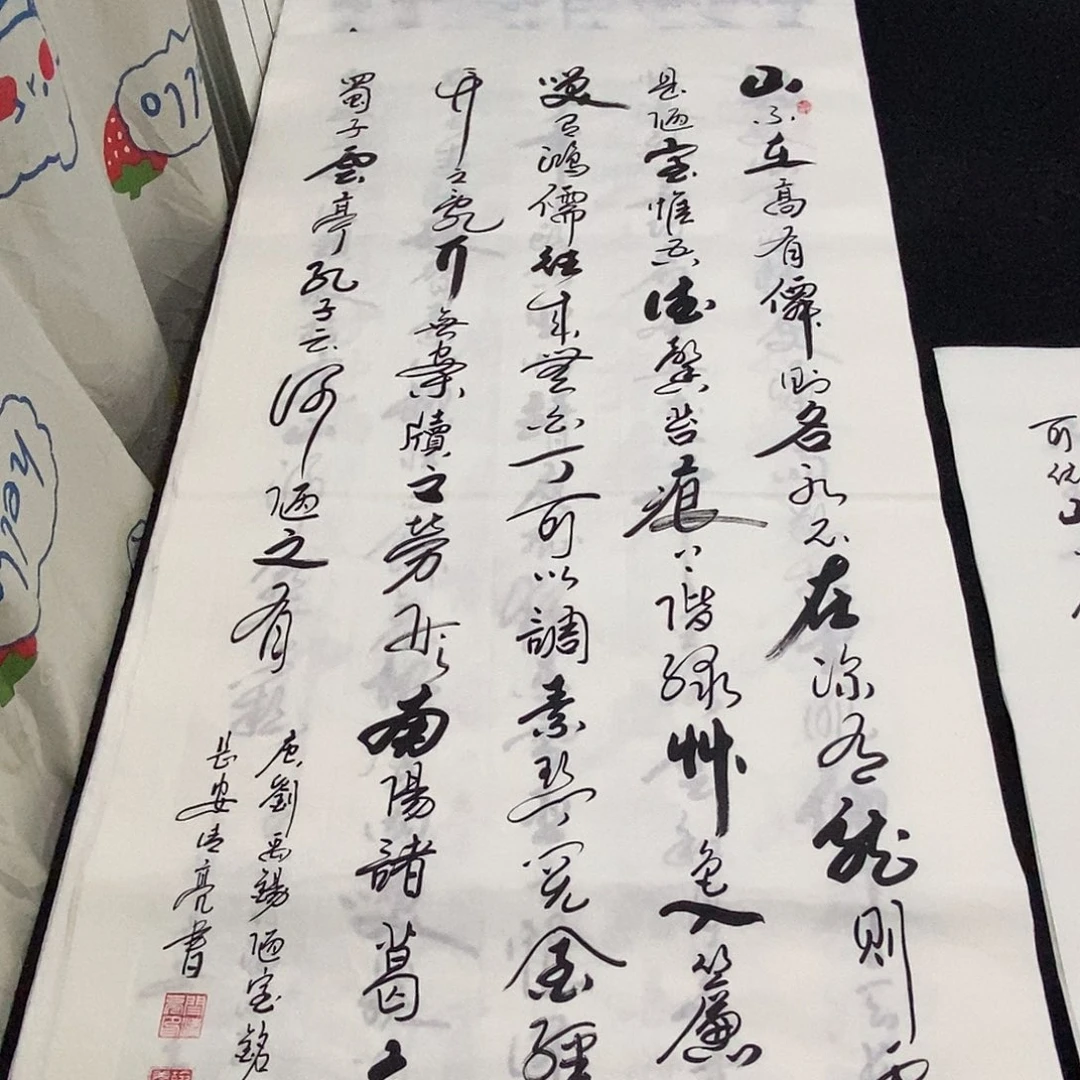 山不在高有僊則名水不在深有龍則
是陋室惟吾德馨苔痕上階緑艸色入簾
笑有鴻儒往来無白丁可以調素琴閲金經
竹之亂耳無案牘之勞形南陽諸葛之
蜀子雲亭孔子云何陋之有
唐劉禹錫陋室銘
長安清亮書
可